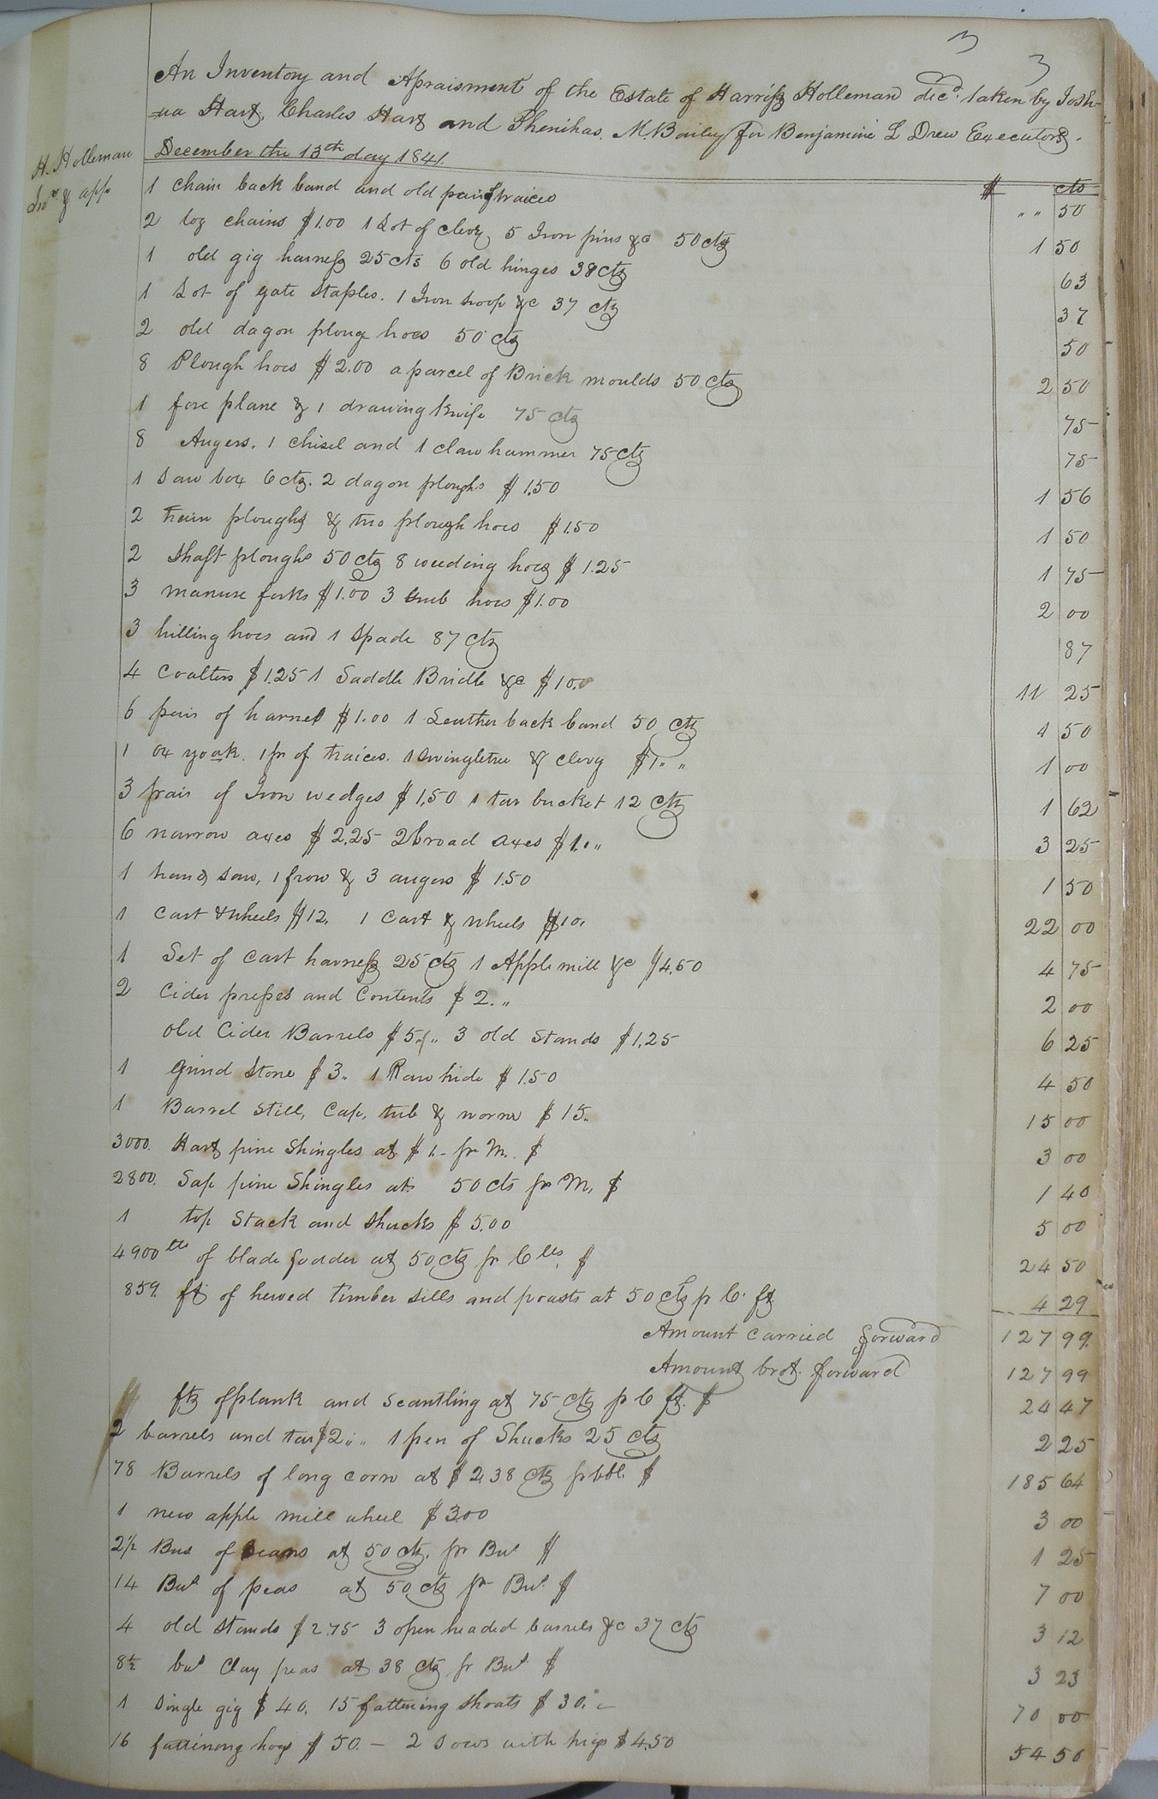 3 3
An Inventory and Apraisment of the Estate of Harriss Holleman decd. taken by Josh-
-ua Hart, Charles Hart and M. Bailey for Benjamine L Drew Executors.
December the 13th day 1841.
H. Holleman
Inv. & app
$ cts
1 chain back band and old pair of traices " " 50
2 log chains $1.00 1 Lot of clevy 5 Iron pins &c 50 cts 1 50
1 old gig harness 25 cts 6 old hinges 38 cts 63
1 Lot of gate Staples. 1 Iron hoop &c 37 cts 37
2 old dagon ploug hoes 50 cts 50
8 Plough hoes $2.00 a parcel of Brick moulds 50 cts 2 50
1 fore plane & 1 drawing knife 75 cts 75
8 Augers. 1 chisel and 1 claw hammer 75 cts 75
1 Saw box 6 cts. 2 dagon ploughs $1.50 1 56
2 ploughs & two plough hoes $1.50 1 50
2 Shaft ploughs 50 cts 8 weeding hoes $1.25 1 75
3 manure forks $1.00 3 Grub hoes $1.00 2 00
3 hilling hoes and 1 Spade 87 cts 87
4 Coalters $1.25 1 Saddle Bridle &c $10.0 11 25
6 pair of harnes $1.00 1 Leather back band 50 cts 1 50
1 ox yoak. 1 pr of traices. 1 Swingletree & clevy $1. " 1 00
3 pair of Iron wedges $1,50 1 tar bucket 12 cts 1 62
6 narrow axes $2.25 2 broad axes $1. " 3 25
1 hand saw, 1 frow & 3 augers $1.50 1 50
1 Cart & wheels $12. 1 Cart & wheels $10. 22 00
1 Set of cart harness 25 cts 1 Apple mill &c $4.50 4 75
2 Cider presses and Contents $2. " 2 00
old Cider Barrels $5. " 3 old Stands $1.25 6 25
1 Grind Stone $3. 1 Raw hide $1.50 4 50
1 Barrel Still, Cap, tub & worm $15. 15 00
3000. Hart pine Shingles at $1. pr M. $ 3 00
2800. Sap pine Shingles at 50 cts pr M. $ 1 40
1 top Stack and Shucks $5.00 5 00
4900 lbs of blade fodder at 50 cts pr C lbs, $ 24 50
859. ft of hewed timber sills and poasts at 50 cts p C. ft 4 29
Amount carried forward 127 99.
Amount brot. forward 127 99
fts of plank and Scantling at 75 cts p C ft. $ 24 47
2 barrels and tar $2. " 1 pen of Shucks 25 cts 2 25
78 Barrels of long corn at $2.38 cts p bbl. $ 185 64
1 new apple mill wheel $3.00 3 00
2½ Bus of beans at 50 cts. pr Bus $ 1 25
14 Bus of peas at 50 cts pr Bus. $ 7 00
4 old Stands $2.75 3 open headed barrels &c 37 cts 3 12
8½ bus Clay peas at 38 cts pr Bus $ 3 23
1 Single gig $40. 15 fattening Shoats $30. 70 00
16 fattinong hogs $50. – 2 Sows with pigs $4.50 54 50